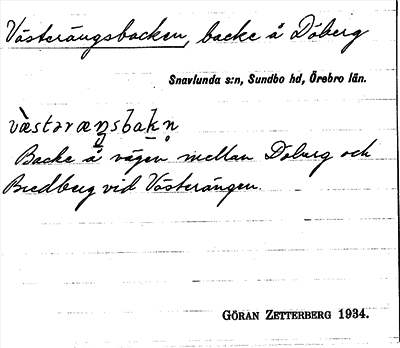 Västerängsbacken, backe å Döberg
Snavlunda s:n, Sundbo hd, Örebro län.
Backe å vägen mellan Döberg och
Bredberg vid Västerängen.
GÖRAN ZETTERBERG 1934.